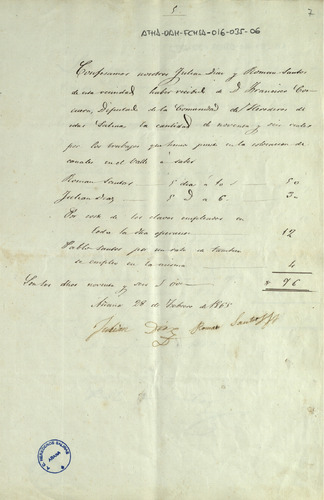 5
7
ATHA-DAH-FCHIA-016-035-06
Confesamos nosotros Julian Diaz y Roman Santos
de esta vecindad haber recibido de D. Francisco
Diputado de la Comunidad de Herederos de
estas Salinas la cantidad de noventa y seis reales
por los trabajos que hemos puesto en la colocacion de
canales en el Valle a saber
Roman Santos 5 dias á 10 50
Julian Diaz 5 D á 6 30
En coste de los clavos empleados en
toda la dha operacion 12
Pablo Santos por un
se empleo en la misma 4
Son los dhos noventa y seis 96
Añana 28 de Febrero de 1865
Julian Diaz Roman Santos
AÑANA